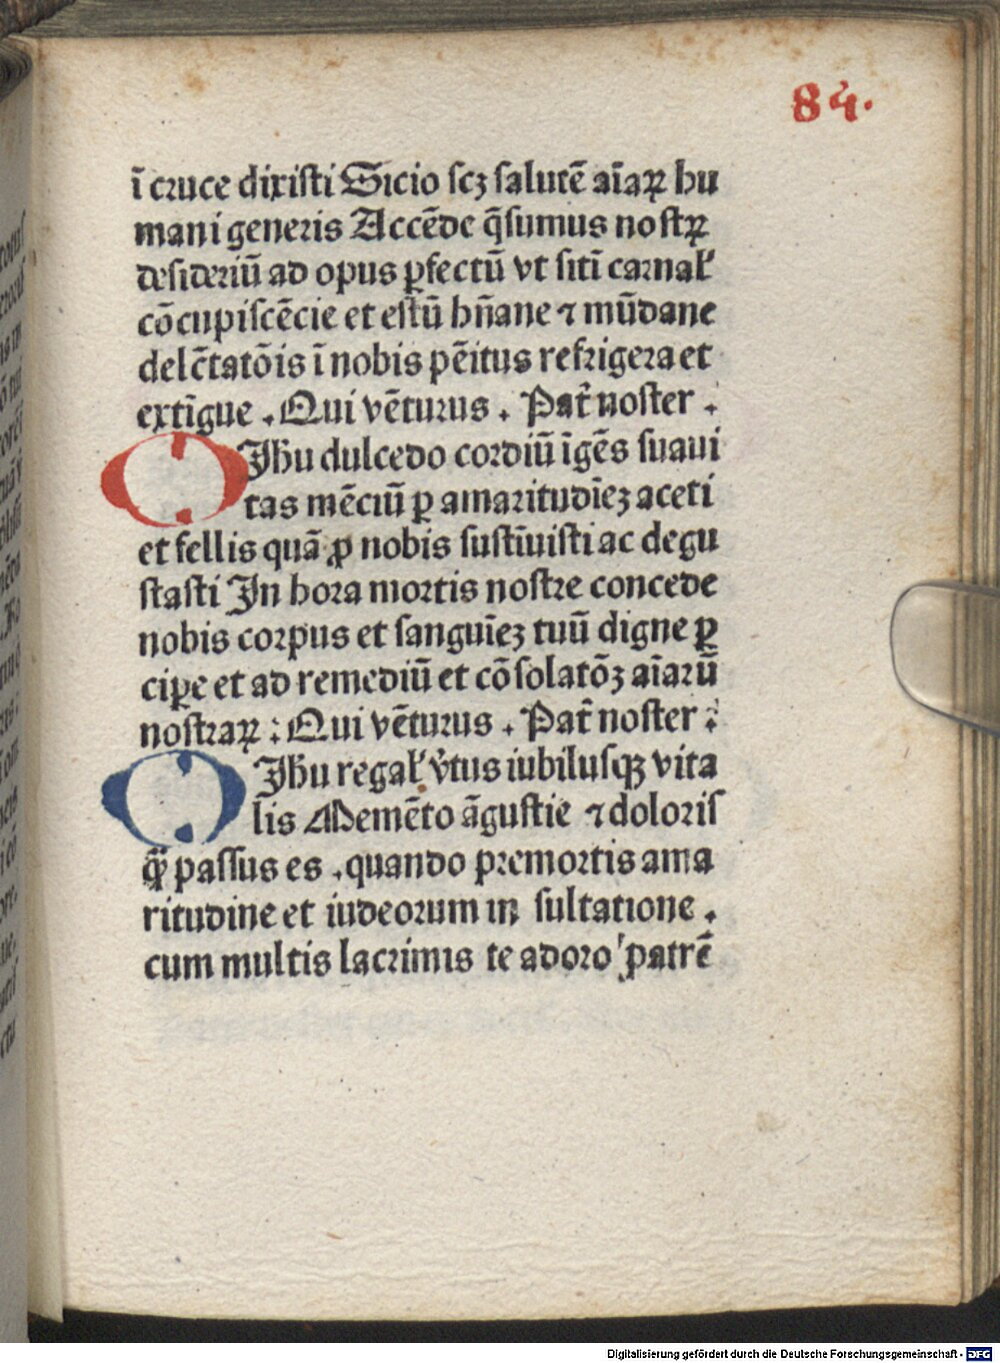 84.
ī cruce dixisti Sicio scꝫ salutē aīaꝝ hu
mani generis Accēde q̄sumus nostꝝ
desideriū ad opus ꝑfectū vt sitī carnal̓
cōcupiscēcie et estū hn̄ane ⁊ mūdane
delc̄tatōis ī nobis pēitus refrigera et
extīgue . Qui vēturus . Pat̄ noster .
O Jhu dulcedo cordiū īgēs suaui
tas mēciū ꝑ amaritudīeꝫ aceti
et fellis quā ꝓ nobis sustīuisti ac degu
stasti In hora mortis nostre concede
nobis corpus et sanguīeꝫ tuū digne ꝑ
ciꝑe et ad remediū et cōsolatōꝫ aīarū
nostraꝝ : Qui vēturus . Pat̄ noster :
O Jhu regal̓ v̓tus iubilusqꝫ vita
lis Memēto āgustie ⁊ doloris
q̄ passus es . quando premortis ama
ritudine et iudeorum in sultatione .
cum multis lacrimis te adoro patrē
Digitalisierung gefördert durch die Deutsche Forschungsgemeinschaft - DFG